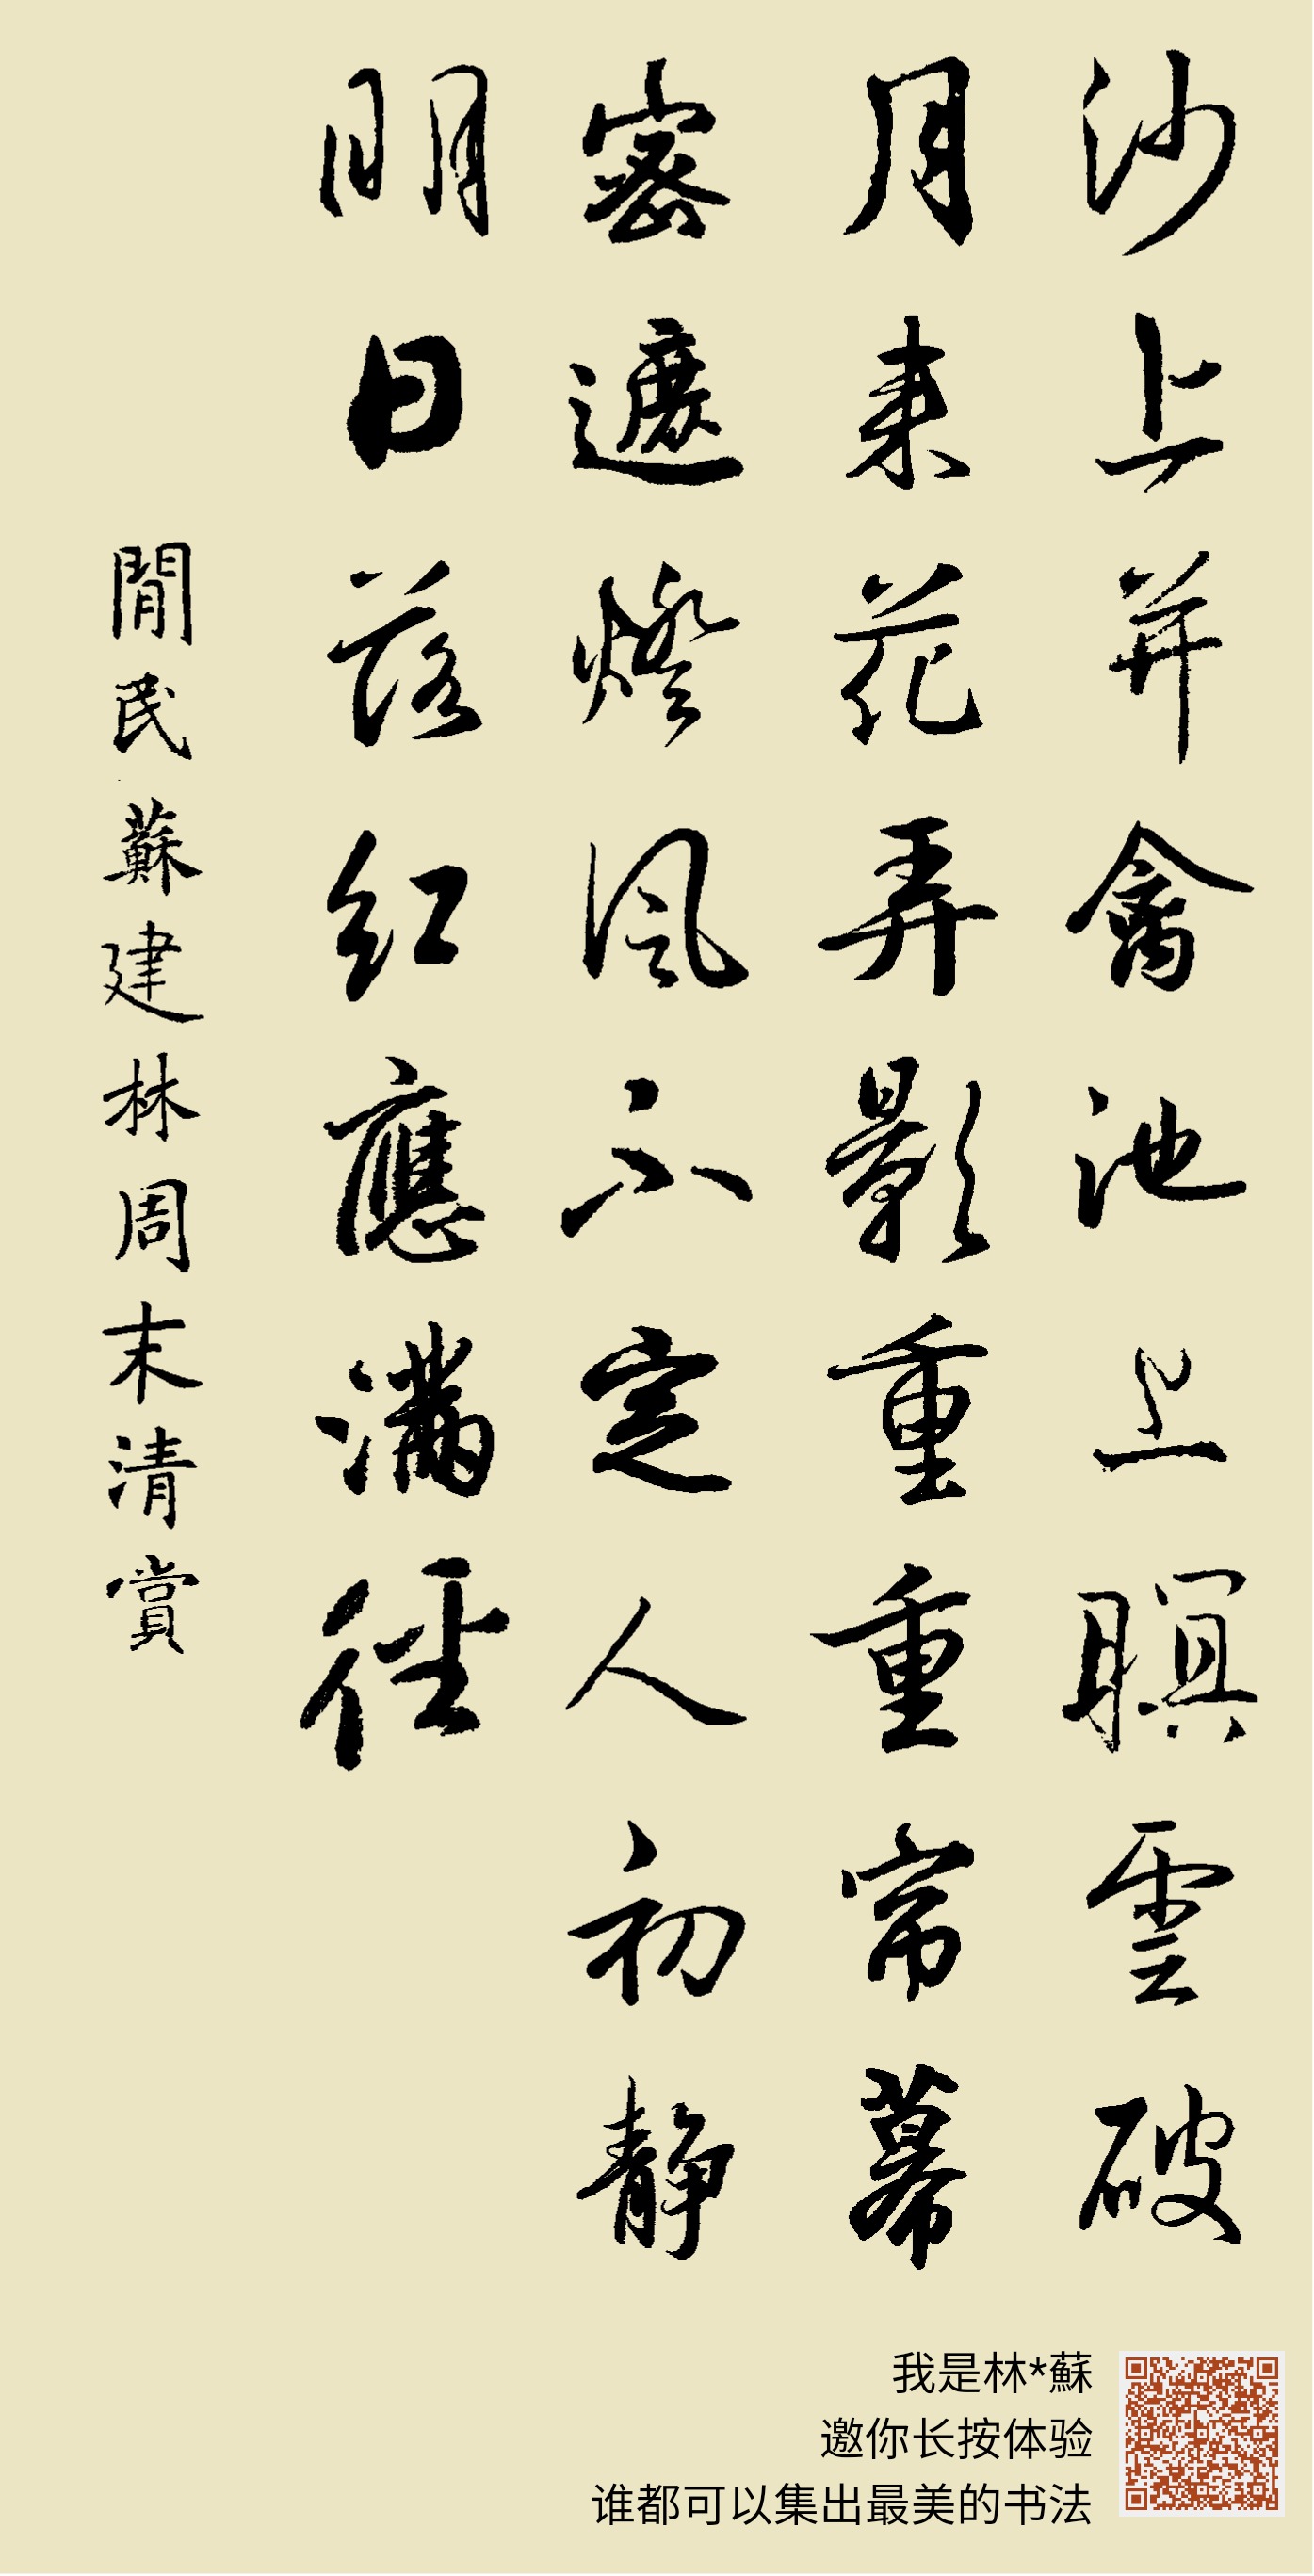 沙上并禽池上瞑雲破
月来花弄影重重帘幕
密遮燈風不定人初静
明日落红應滿徑
閒民蘇建林周末清賞
我是林*蘇
邀你长按体验
谁都可以集出最美的书法